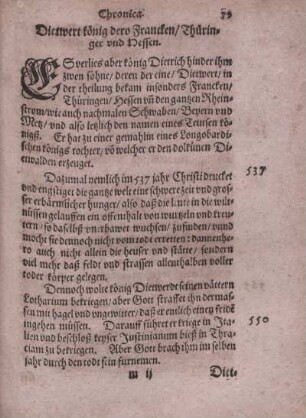 Chronica. 59
Dietwert könig dero Francken/ Thürin-
ger vnd Hessen.
ES verlies aber könig Dietrich hinder ihm
zwen söhne/ deren der eine/ Dietwert/ in
der theilung bekam insonders Francken/
Thüringen/ Hessen vñ den gantzen Rhein-
strom/ wie auch nachmalen Schwaben/ Beyern vnd
Metz/ vnd also letzlich den namen eines Teutsen kö-
nigs. Er hat zu einer gemahlin eines Longobardi-
schen königs tochter/ võ welcher er den
Diewalden erzeuget.
Dazumal nemlich im 537 jahr Christi drucket 537
vnd engstiget die gantze welt eine schwere zeit vnd gros-
ser erbärmlicher hunger/ also daß die leute in die wilt-
nüssen gelauffen ein offenthalt von wurtzeln vnd kreu-
tern/ so daselbst vnerbawet wuchsen/ zufinden/ vnd
mocht sie dennoch nicht vom todt erretten: dannenhe-
ro auch nicht allein die heuser vnd stätte/ sondern
viel mehr daß feldt vnd strassen allenthalben voller
todter körper gelegen.
Dennoch wolte könig Dietwerdt seinen vättern
Lotharium bekriegen/ aber Gott straffet ihn dermas-
sen mit hagel vnd vngewitter/ daß er entlich einen fride
ingehen müssen. Darauff führet er kriege in Ita- 550
lien vnd beschloß keyser Justinianum bieß in Thra-
ciam zu bekriegen. Aber Gott brach ihm im selben
jahr durch den todt sein fürnemen.
m ij Diet-